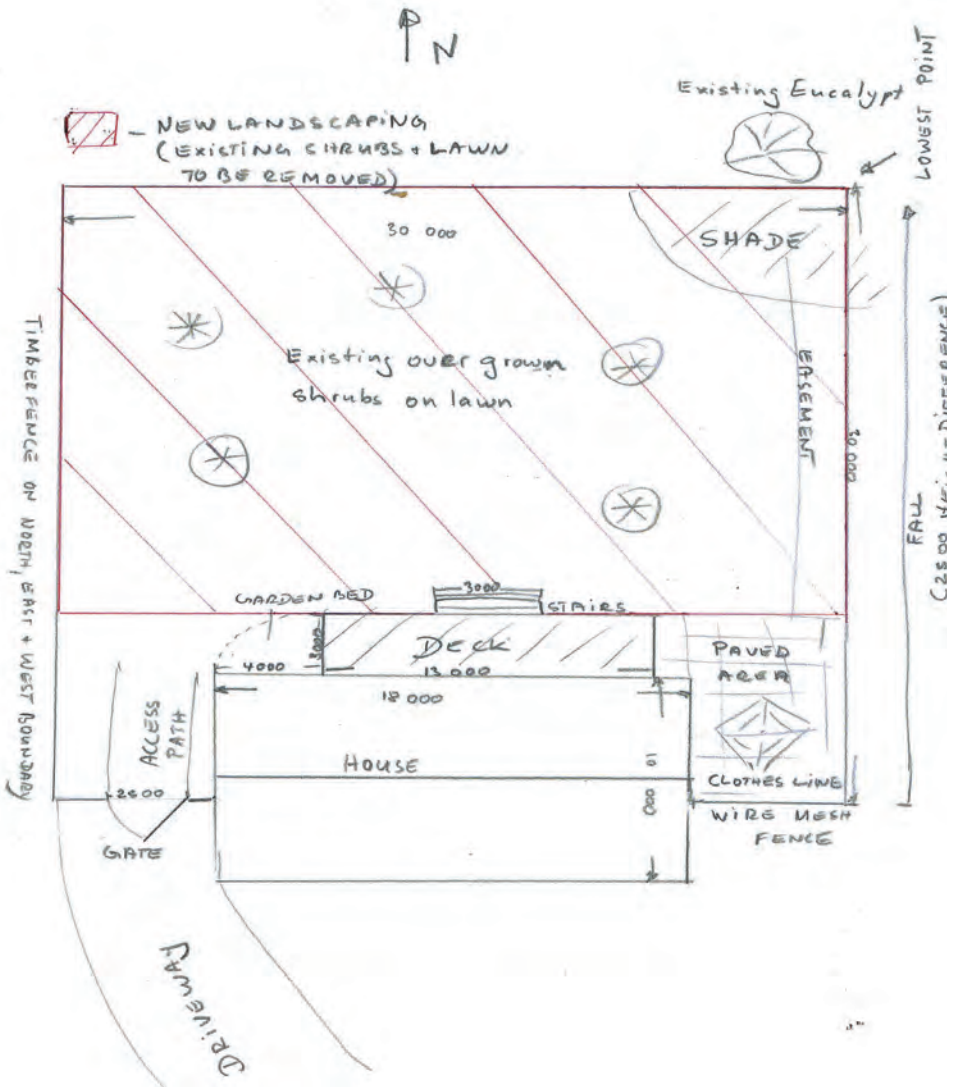 N
Existing Eucalypt
LOWEST POINT
- NEW LANDSCAPING
(EXISTING SHRUBS + LAWN
TO BE REMOVED)
30 000
SHADE
Existing over grown
shrubs on lawn
EASEMENT
20 000
FALL
(2500 DIFFERENCE)
TIMBER FENCE ON NORTH, EAST + WEST BOUNDARY
GARDEN BED
3000
STAIRS
DECK
4000
13 000
18 000
PAVED
AREA
ACCESS
PATH
HOUSE
10 000
CLOTHES LINE
WIRE MESH
FENCE
GATE
DRIVEWAY